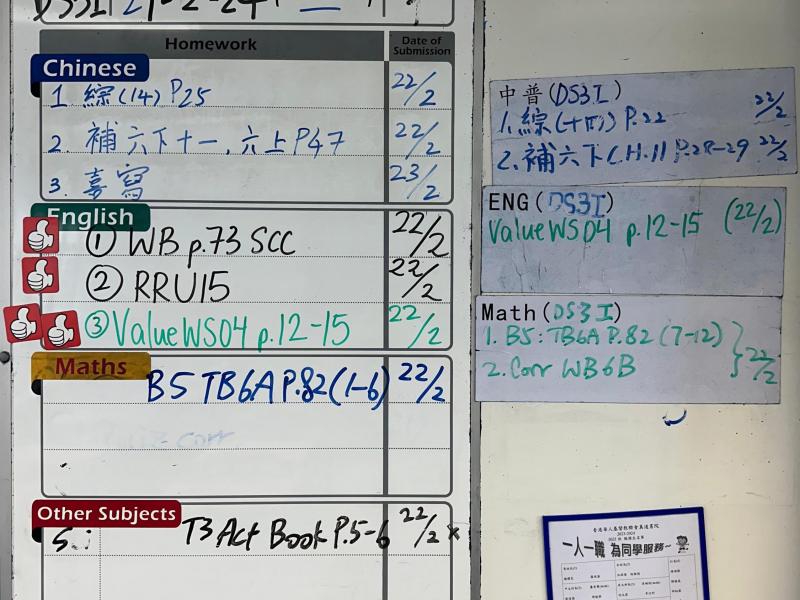 Homework
Date of Submission
Chinese
1 綜(14) P25 22/2
2. 補六下十一, 六上P47 22/2
3. 書寫 23/2
English
① WB p.73 SCC 22/2
② RRU15 22/2
③ Value WS04 p.12-15 22/2
Maths
B5 TB6A P.82 (1-6) 22/2
Other Subjects
S.: T3 Act Book P.5-6 22/2 x
中普(DS3I)
1. 綜(十四) P.22 22/2
2. 補六下CH.11 P.28-29 22/2
ENG (DS3I)
Value WS04 p.12-15 (22/2)
Math (DS3I)
1. B5: TB6A P.82 (7-12)
2. Corr WB6B
22/2
香港華人基督教聯會真道書院
2023-2024
一人一職 為同學服務~